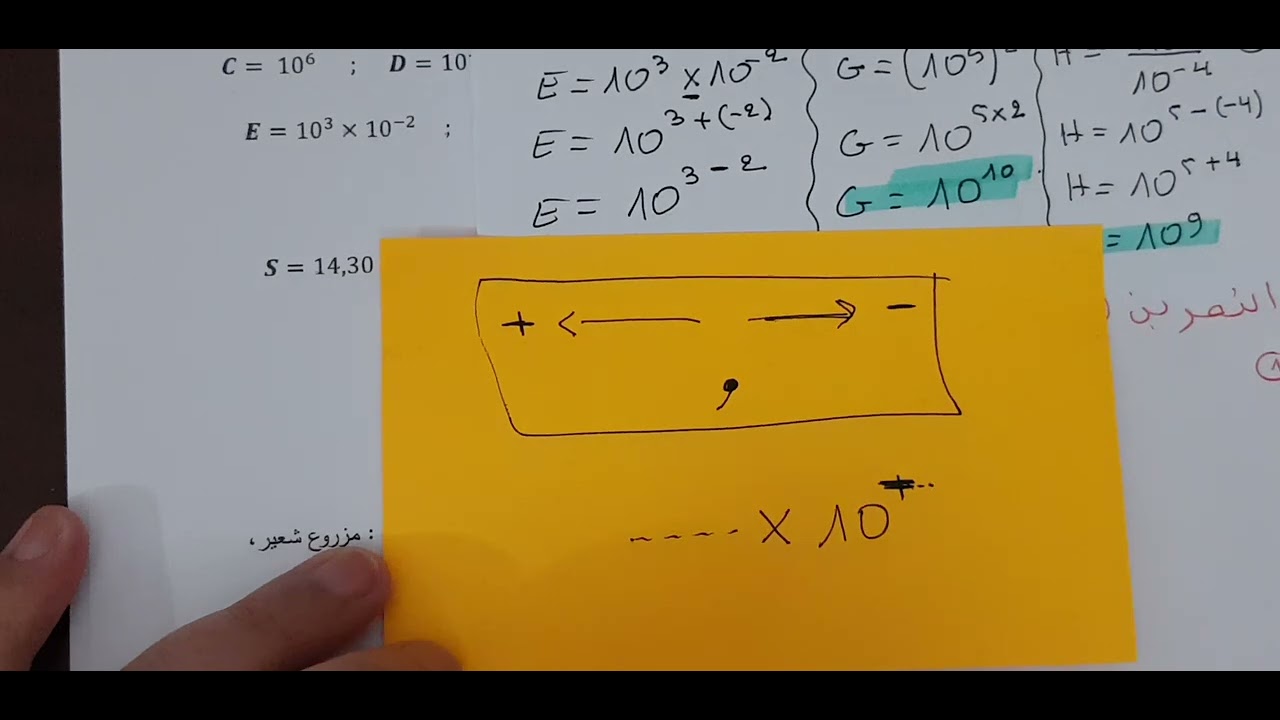 C = 10⁶ ; D = 10
E = 10³ × 10⁻² ;
S = 14,30
: مزروع شعير ،
E = 10³ × 10⁻²
E = 10³⁺⁽⁻²⁾
E = 10³⁻²
G = (10⁵)
G = 10⁵ˣ²
G = 10¹⁰
H =
10⁻⁴
H = 10⁵⁻⁽⁻⁴⁾
H = 10⁵⁺⁴
= 10⁹
التمرين
+ ← → -
,
---- × 10⁺··